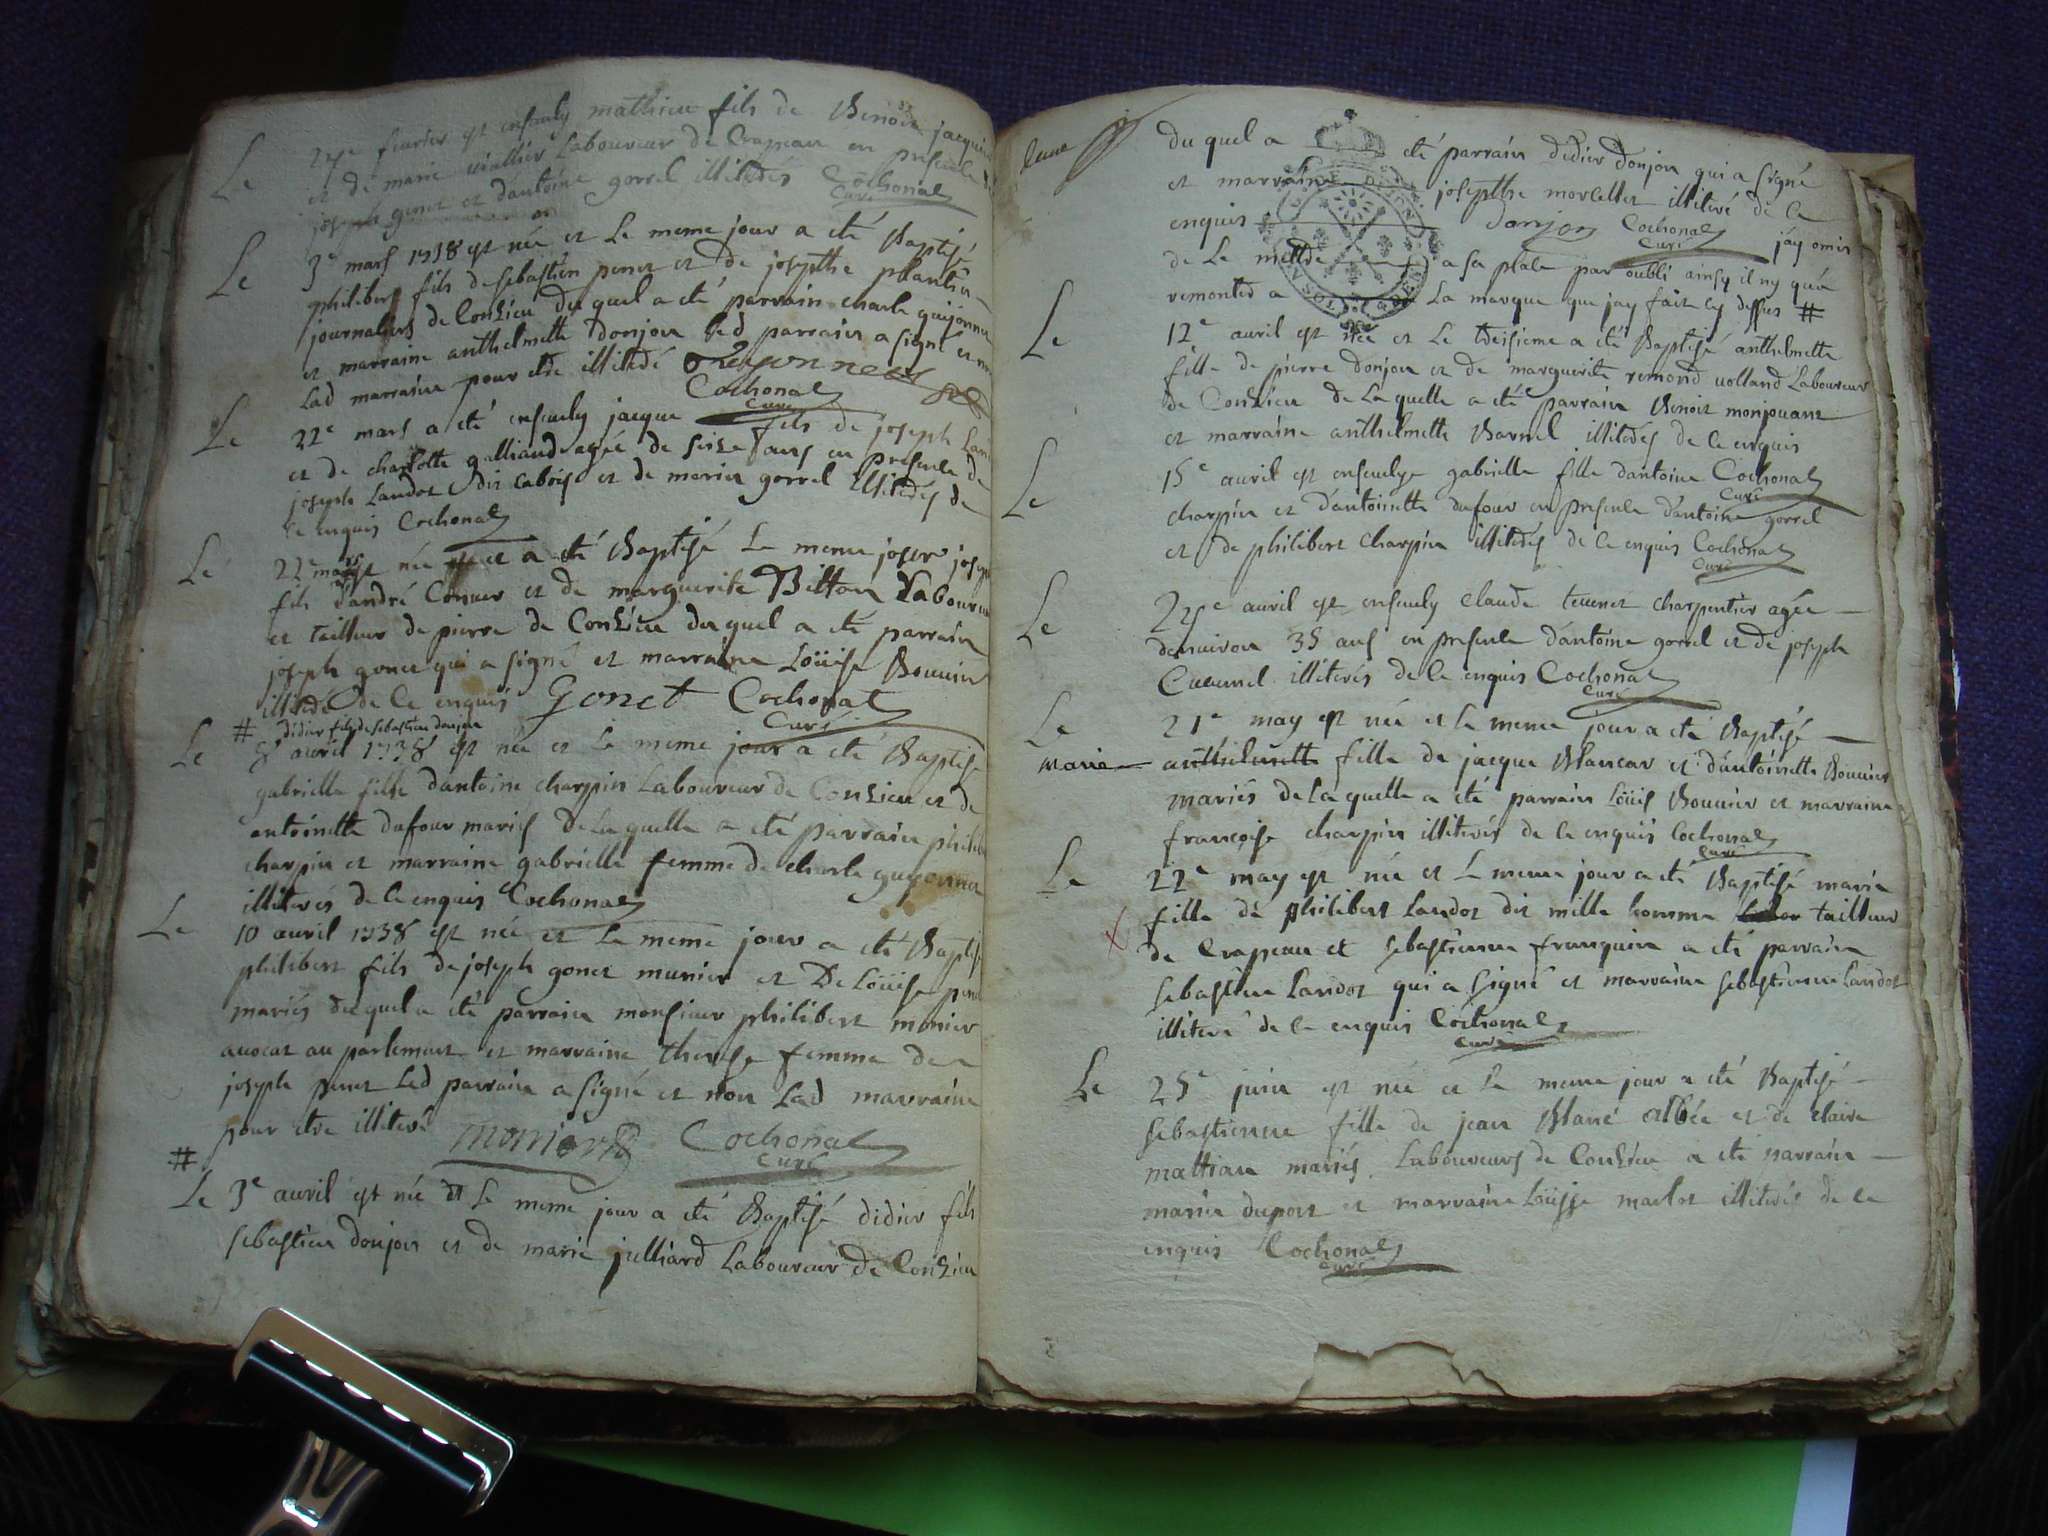 Le 27e feurier est enseuely mathieu fils de Benoit jacquier
et de marie Laboureur de Crapeau en presence de
joseph gonet et dantoine gorrel illiterés Cochonat
Curé
Le 3e mars 1738 est née et Le meme jour a eté Baptisé
philibert fils de sebastien penet et de josepthe plantier
journaliers de Conzieu duquel a eté parrain charle guijonnet
et marraine anthelmette donjon Led parrain a signé et non
Lad marraine pour etre illiteré
Cochonat
Curé
Le 22e mars a eté enseuely jacque fils de joseph Landot
et de charlotte galliand agée de seise ans en presence de
joseph Landot dit cabois et de marin gorrel illiterés de
ce enquis Cochonat
Le 22e mars est née et a eté Baptisé Le meme jour joseph
fils d'andré et de marguerite Bitton Laboureur
et tailleur de pierre de Conzieu duquel a eté parrain
joseph gonet qui a signé et marraine Loüise Bouuier
illiteré de ce enquis Gonet Cochonat
Curé
# didier fils de sebastien donjon
Le 8e auril 1738 est née et Le meme jour a eté Baptisé
gabrielle fille dantoine charpin Laboureur de Conzieu et de
antoinette dufour mariés de Laquelle a eté parrain philibert
charpin et marraine gabrielle femme de charle guyonnet
illiterés de ce enquis Cochonat
Le 10 auril 1738 est née et Le meme jour a eté Baptisé
philibert fils de joseph gonet munier et De Loüise penet
mariés duquel a eté parrain monsieur philibert monier
auocat au parlement et marraine therese femme de
joseph penet Led parrain a signé et non Lad marraine
pour etre illiteré monier Cochonat
Curé
#
Le 3e auril est née et Le meme jour a eté Baptisé didier fils
sebastien donjon et de marie julliard Laboureur de Conzieu
duquel a eté parrain didier donjon qui a signé
et marraine josepthe morcellet illiteré de ce
enquis donjon Cochonat jay omis
Curé
de Le mettre a sa place par oubli ainsy il ny qua
remonter a La marque que jay fait cy dessus #
Le 12e auril est née et Le treisieme a eté Baptisé anthelmette
fille de pierre donjon et de marguerite remond uolland Laboureur
de Conzieu de Laquelle a eté parrain Benoit monjouant
et marraine anthelmette Barnel illiterés de ce enquis
Le 15e auril est enseuelye gabrielle fille dantoine Cochonat
Curé
charpin et d'antoinette dufour en presence d'antoine gorrel
et de philibert charpin illiterés de ce enquis Cochonat
Curé
Le 25e auril est enseuely claude teuenet charpentier agée
denuiron 35 ans en presence d'antoine gorrel et de joseph
illiterés de ce enquis Cochonat
Curé
Le 21e may est née et Le meme jour a eté Baptisé
marie anthelmette fille de jacque Blancar et d'antoinette Bouuier
mariés de Laquelle a eté parrain Loüis Bouuier et marraine
françoise charpin illiterés de ce enquis Cochonat
Curé
Le 22e may est née et Le meme jour a eté Baptisé marie
fille de philibert Landot dit mille homme tailleur
de Crapeau et sebastienne franquin a eté parrain
sebastien Landot qui a signé et marraine sebastienne Landot
illiteré de ce enquis Cochonat
Curé
Le 25e juin est née et Le meme jour a eté Baptisé
sebastienne fille de jean Blanc albée et de claire
mattian mariés Laboureurs de Conzieu a eté parrain
marin duport et marraine Loüise marlot illiterés de ce
enquis Cochonat
Curé